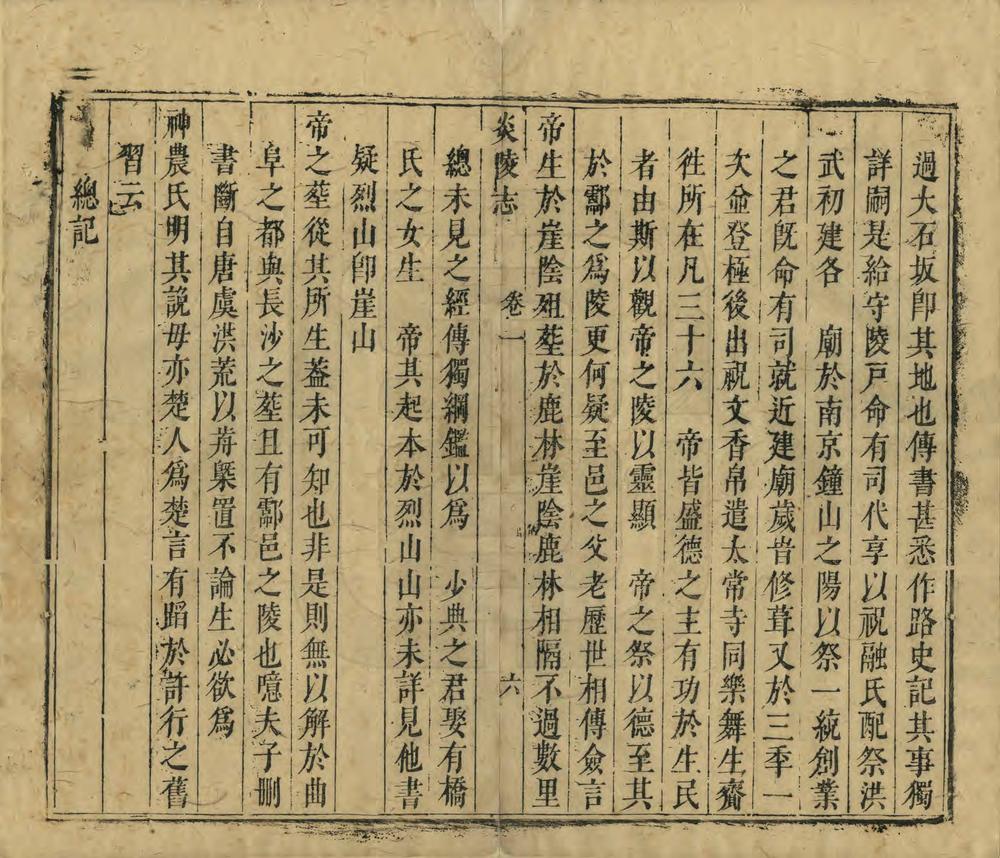 過大石坂卽其地也傳書甚悉作路史記其事獨
詳嗣是給守陵戸命有司代享以祝融氏配祭洪
武初建各　廟於南京鐘山之陽以祭一統創業
之君旣命有司就近建廟歲旹修葺又於三季一
次並登極後出祝文香帛遣太常寺同樂舞生齎
徃所在凡三十六　帝皆盛德之主有功於生民
者由斯以觀帝之陵以靈顯　帝之祭以德至其
於酃之爲陵更何疑至邑之父老歷世相傳僉言
帝生於崖陰殂塟於鹿林崖陰鹿林相隔不過數里
炎陵志　卷一　六
總未見之經傳獨綱鑑以爲　少典之君娶有橋
氏之女生　帝其起本於烈山山亦未詳見他書
疑烈山卽崖山
帝之塟從其所生葢未可知也非是則無以解於曲
阜之都與長沙之塟且有酃邑之陵也噫夫子刪
書斷自唐虞洪荒以前槩置不論生必欲爲
神農氏明其說毋亦楚人爲楚言有蹈於許行之舊
習云
總記